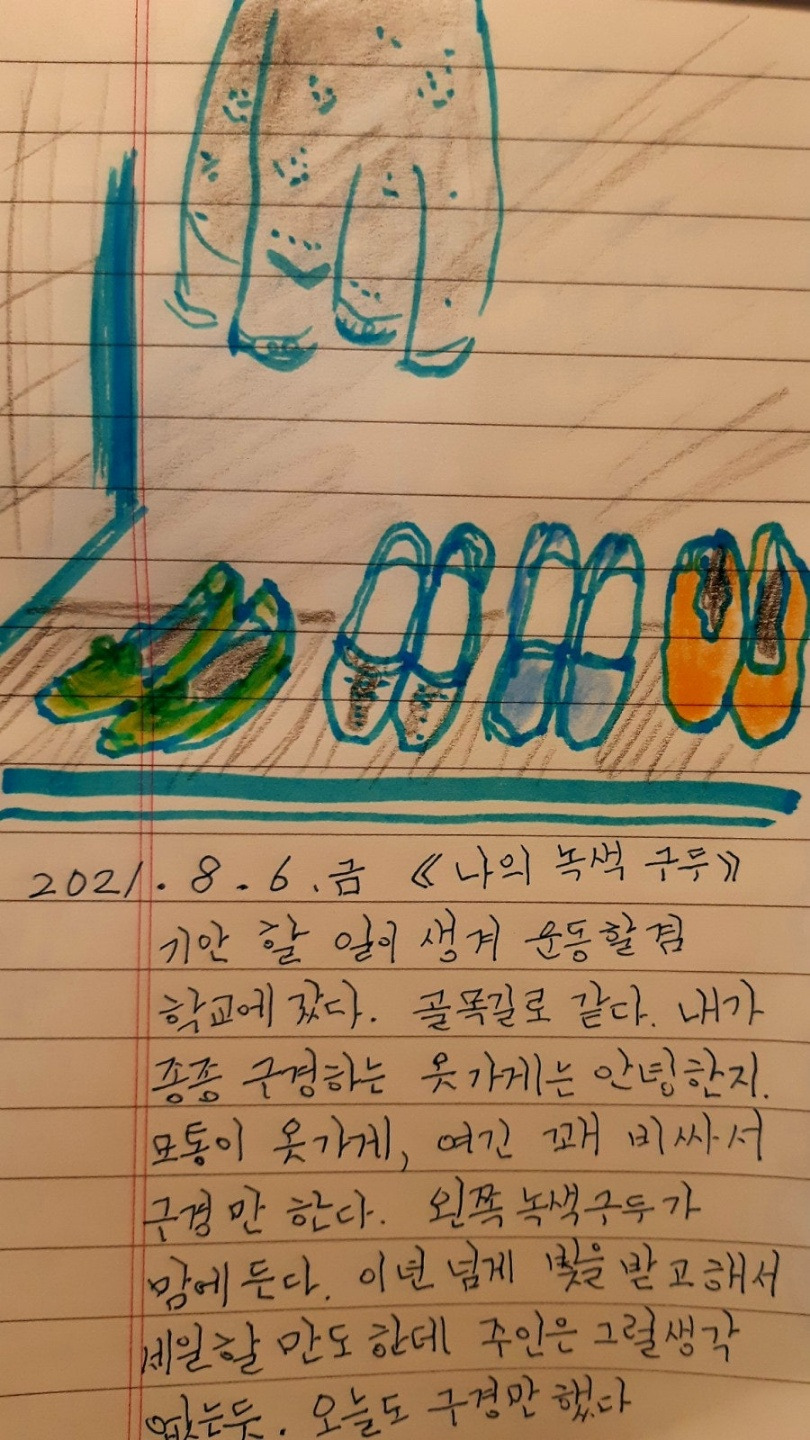 2021. 8. 6. 금 《나의 녹색 구두》
기안 할 일이 생겨 운동할 겸
학교에 갔다. 골목길로 갔다. 내가
종종 구경하는 옷가게는 안녕한지.
모퉁이 옷가게, 여긴 꽤 비싸서
구경만 한다. 왼쪽 녹색구두가
맘에 든다. 이년 넘게 빛을 받고해서
세일할 만도 한데 주인은 그럴생각
없는듯. 오늘도 구경만 했다